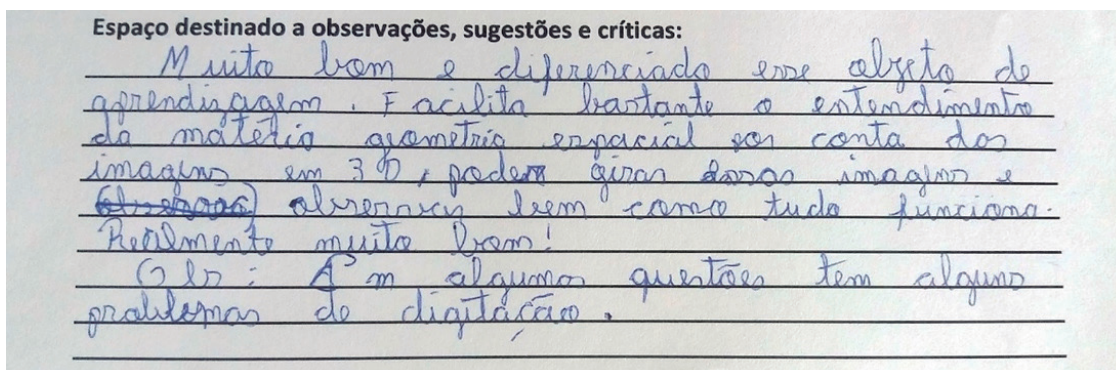 Espaço destinado a observações, sugestões e críticas:
Muito bom e diferenciado esse objeto de
aprendizagem. Facilita bastante o entendimento
da matéria geometria espacial por conta das
imagens em 3D, poder girar essas imagens e
observar bem como tudo funciona.
Realmente muito bom!
Obs: Em algumas questões tem alguns
problemas de digitação.